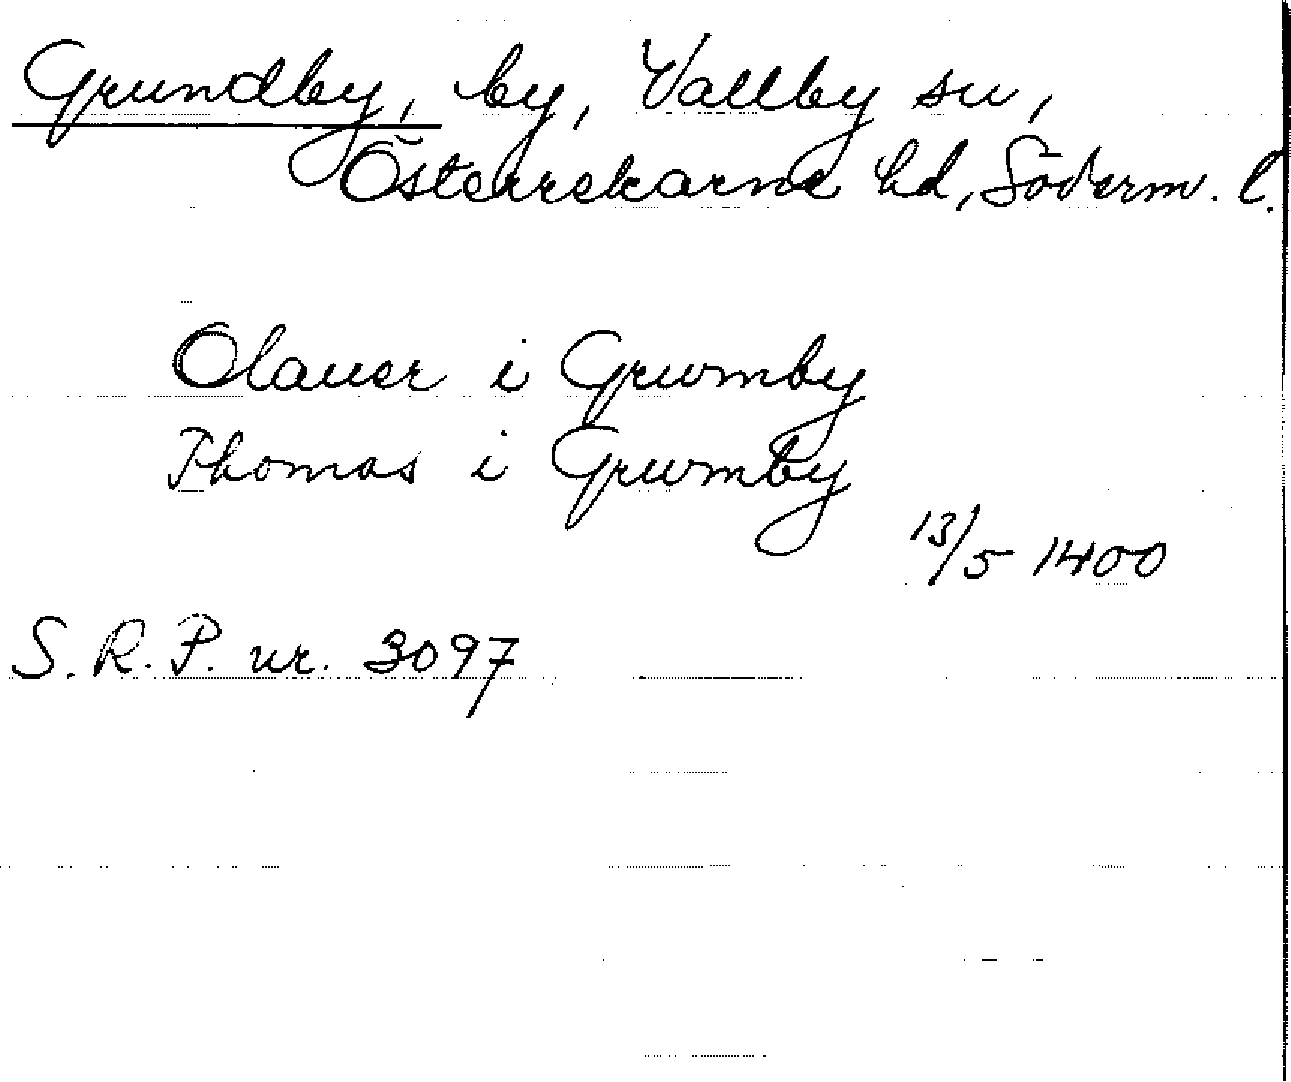 Grundby, by, Vallby sn,
Österrekarne hd, Söderm. l.
Olauer i Grwmby
Thomas i Grwmby
13/5 1400
S. R. P. nr. 3097